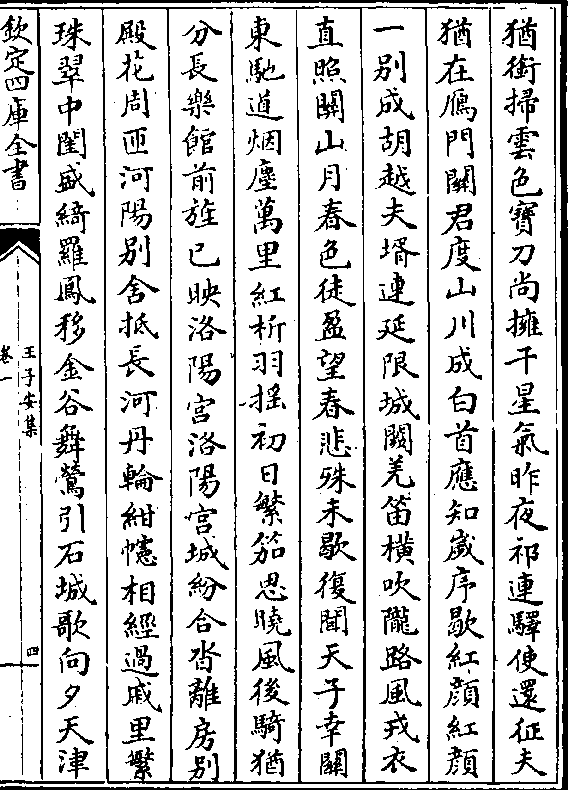 猶銜掃雲色寳刀尚擁干星氣昨夜祁連驛使還征夫
猶在鴈門關君度山川成白首應知歲序歇紅顔紅顔
一别成胡越夫壻連延限城闕羌笛横吹隴路風戎衣
直照關山月春色徒盈望春悲殊未歇復聞天子幸關
東馳道烟塵萬里紅析羽揺初日繁笳思曉風後騎猶
分長樂館前旌已映洛陽宫洛陽宫城紛合沓離房别
殿花周匝河陽别舍抵長河丹輪紺幰相經過戚里繁
珠翠中閨盛綺羅鳳移金谷舞鶯引石城歌向夕天津
欽定四庫全書
王子安集
卷一
四